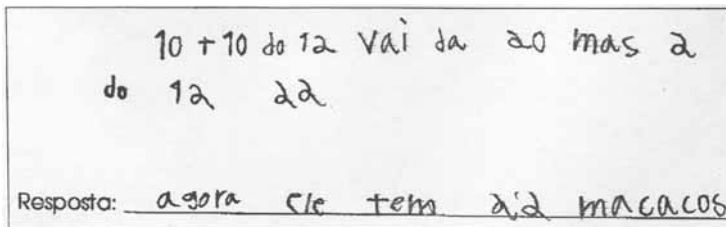 10 + 10 do 12 vai da 20 mas 2
do 12 22
Resposta: agora ele tem 22 macacos